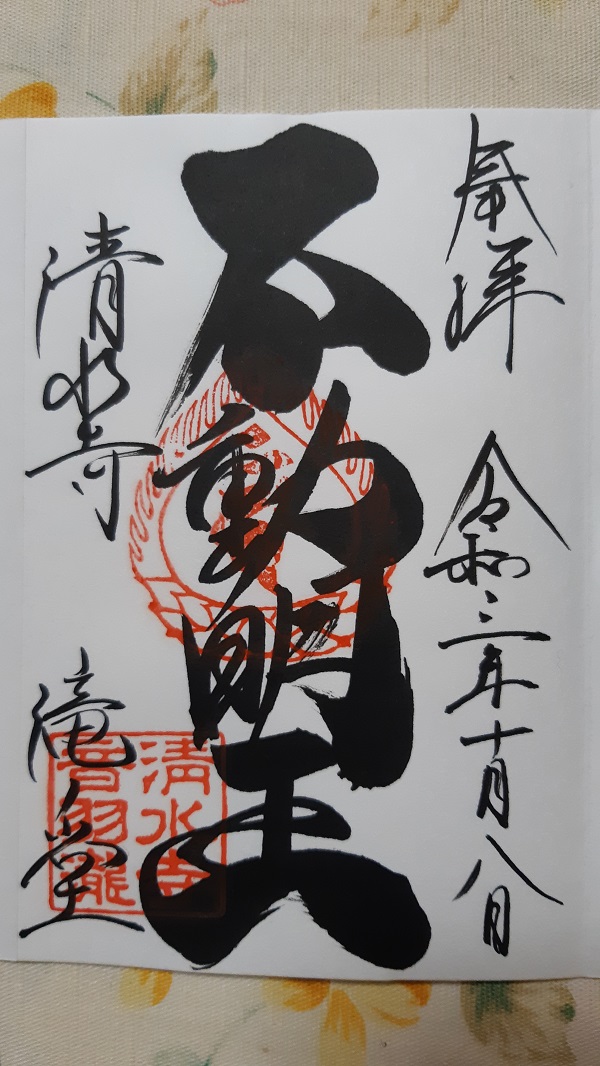 奉拝 令和三年十月八日
不動明王
清水寺 滝堂
清水寺
音羽瀧